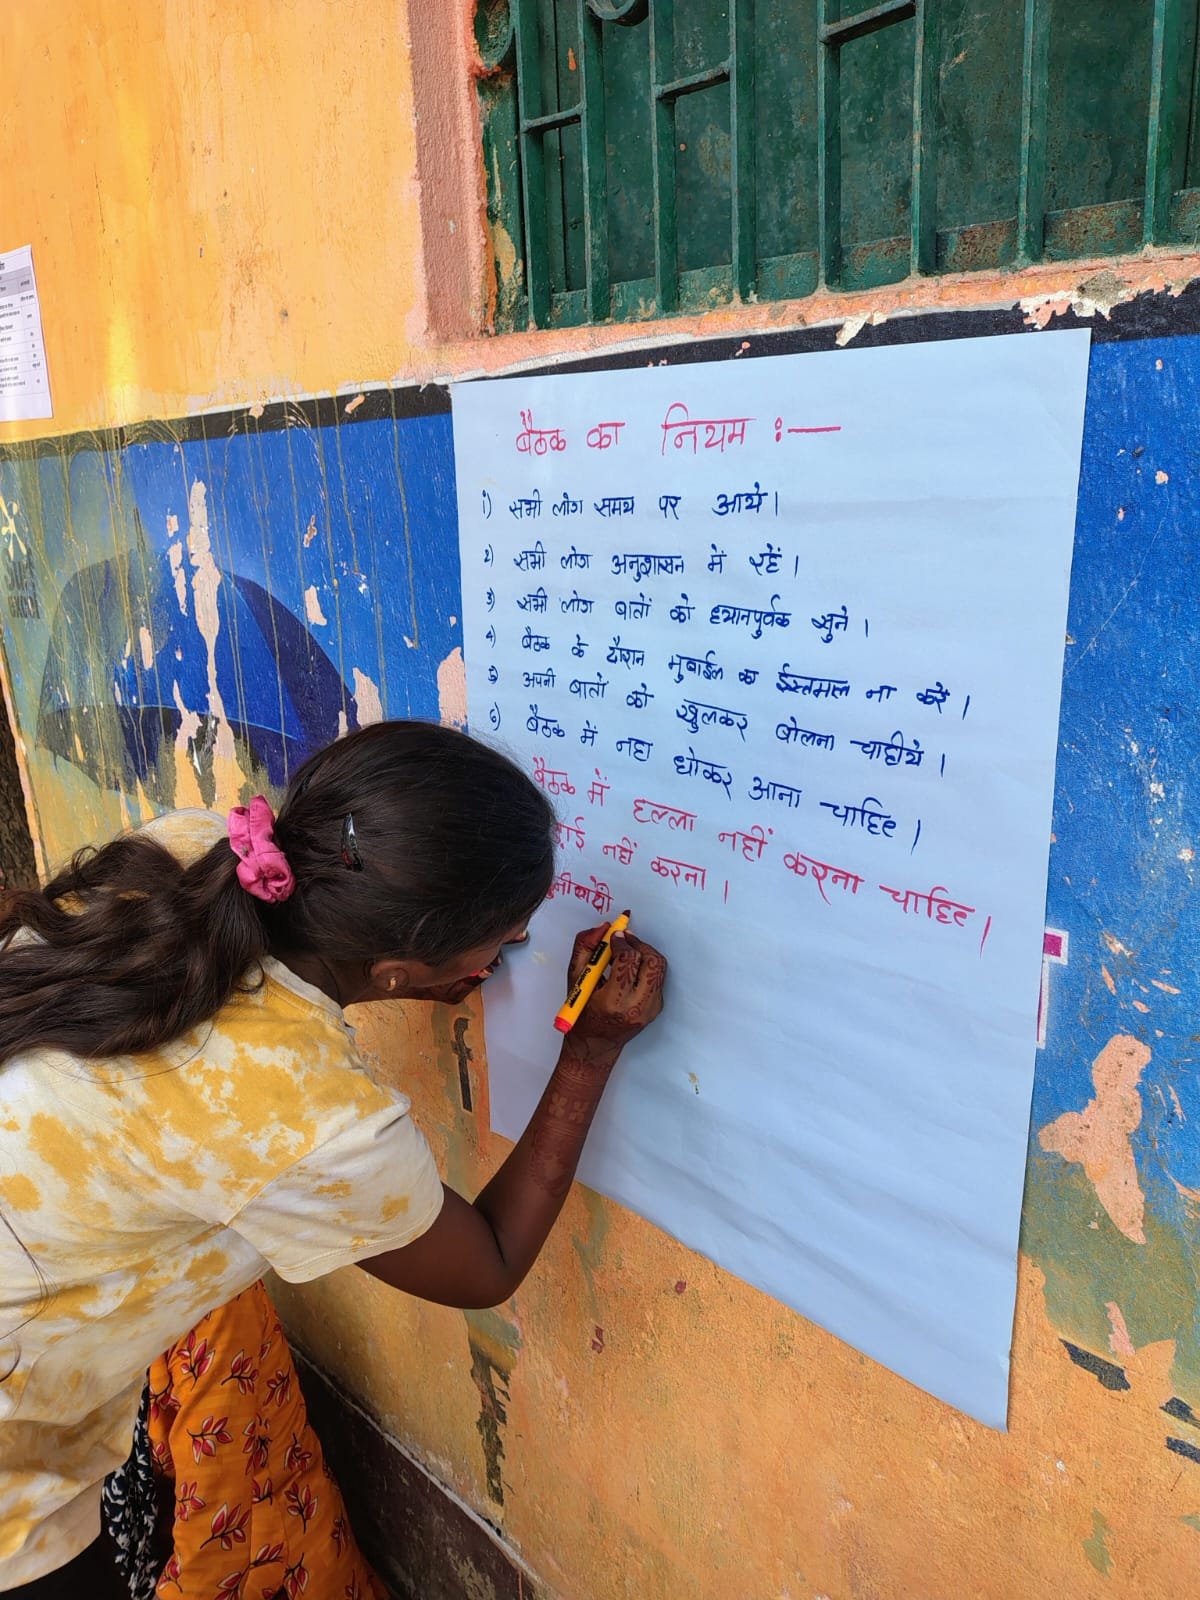 बैठक का नियम :—
1) सभी लोग समय पर आये।
2) सभी लोग अनुशासन में रहें।
3) सभी लोग बातों को ध्यानपुर्वक सुने।
4) बैठक के दौरान मुबाईल का ईस्तमाल ना करें।
5) अपनी बातों को खुलकर बोलना चाहीये।
6) बैठक में नहा धोकर आना चाहिए।
बैठक में हल्ला नहीं करना चाहिए।
नहीं करना।